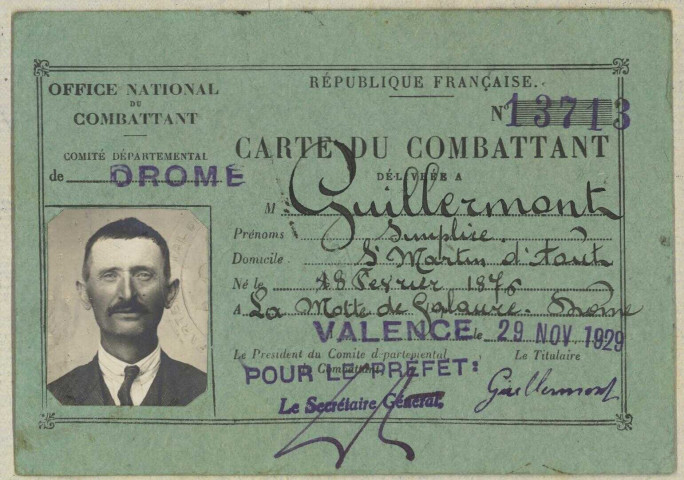 OFFICE NATIONAL
DU
COMBATTANT
COMITÉ DÉPARTEMENTAL
de DROME
RÉPUBLIQUE FRANÇAISE.
N° 13713
CARTE DU COMBATTANT
DÉLIVRÉE A
M Guillermont
Prénoms Simplice.
Domicile. St Martin d'Août
Né le 18 Février 1876
A La Motte de Galaure. Drôme
VALENCE le 29 NOV 1929
Le Président du Comité départemental
du Combattant,
Le Titulaire
POUR LE PRÉFET:
Le Secrétaire Général,
Guillermont